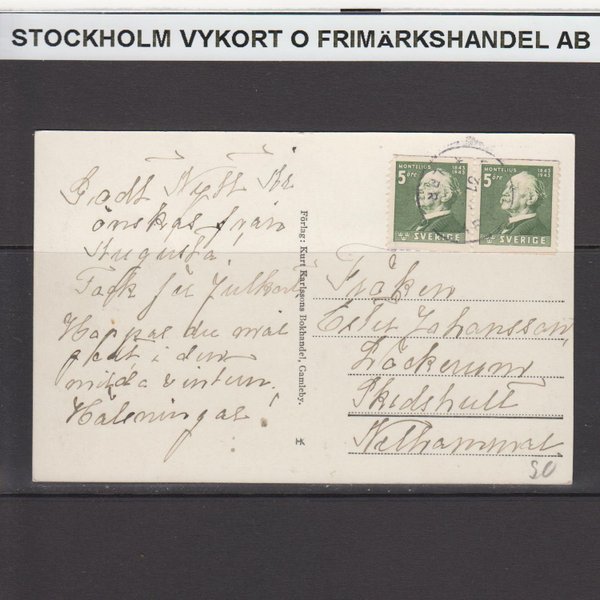 STOCKHOLM VYKORT O FRIMÄRKSHANDEL AB
MONTELIUS 1843 1943
5 öre
SVERIGE
MONTELIUS 1843 1943
5 öre
SVERIGE
Godt Nytt År
önskas från
Augusta.
Tack för Julkort
Hoppas du mår
godt i den
milda vintern.
Hälsningar!
Förlag: Kurt Karlssons Bokhandel, Gamleby.
HK
Fröken
Ester Johansson,
Däckerum
Skedshult
50